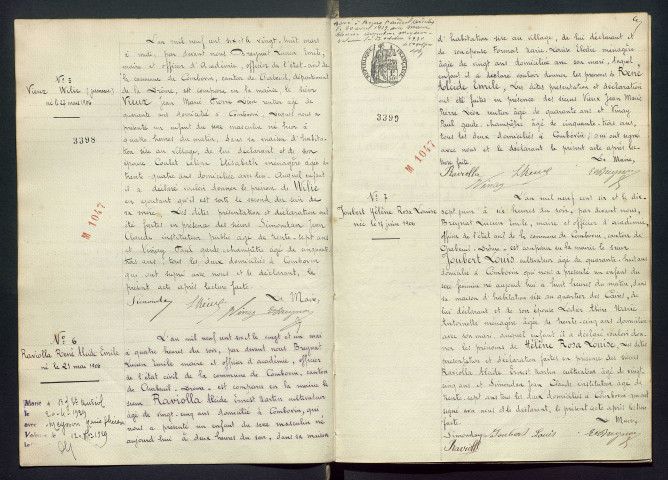 N° 5
Vieux Wilie (jumeau)
né le 27 mars 1906
3398
M 1047
L'an mil neuf cent six le vingt-huit mars
à midi, par devant nous Breynat Lucien Emile,
maire et officier d'Académie, officier de l'état civil de
la commune de Combovin, canton de Chabeuil, département
de la Drôme, est comparu en la mairie le sieur
Vieux Jean Marie Pierre Léon rentier âgé de
quarante ans domicilié à Combovin, lequel nous a
présenté un enfant du sexe masculin né hier à
quatre heures du matin, dans sa maison d'habita-
tion sise au village, de lui déclarant et de son
épouse Coulet Céline Elisabeth ménagère âgée de
trente quatre ans domiciliée au dit lieu. Auquel enfant
il a déclaré vouloir donner le prénom de Wilie
en ajoutant qu'il est sorti le second du sein de
sa mère. Les dites présentation et déclaration ont
été faites en présence des sieurs Simondan Jean
Claude instituteur public âgé de trente-sept ans
et Vinay Paul garde champêtre âgé de cinquante
trois ans, tous les deux domiciliés à Combovin
qui ont signé avec nous et le déclarant, le
présent acte après lecture faite.
Le Maire,
Simondan Vieux Vinay Breynat
N° 6
Raviolla René Alide Emile
né le 21 mai 1906
Marié à
le 20-6-1929
avec
L'an mil neuf cent six le vingt et un mai
à quatre heures du soir, par devant nous Breynat
Lucien Emile maire et officier d'académie, officier
de l'état civil de la commune de Combovin, canton
de Chabeuil, Drôme, est comparu en la mairie le
sieur Raviolla Alide Ernest Martin cultivateur
âgé de vingt-cinq ans domicilié à Combovin, qui
nous a présenté un enfant du sexe masculin né
aujourd'hui à deux heures du soir, dans sa maison
3399
M 1047
d'habitation sise au village, de lui déclarant et
de son épouse Formont Marie Louise Elodie ménagère
âgée de vingt ans domiciliée avec son mari, auquel
enfant il a déclaré vouloir donner les prénoms de René
Alide Emile. Les dites présentation et déclaration
ont été faites en présence des sieurs Vieux Jean Marie
Pierre Léon rentier âgé de quarante ans et Vinay
Paul garde champêtre âgé de cinquante-trois ans,
tous les deux domiciliés à Combovin, qui ont signé
avec nous et le déclarant le présent acte après lec-
ture faite.
Le Maire,
Raviolla Vinay Vieux Breynat
N° 7
Joubert Hélène Rosa Louise
née le 17 juin 1906
L'an mil neuf cent six et le dix-
sept juin à six heures du soir, par devant nous,
Breynat Lucien Emile, maire et officier d'académie,
officier de l'état civil de la commune de Combovin, canton de
Chabeuil, Drôme, est comparu en la mairie le sieur
Joubert Louis cultivateur âgé de quarante-huit ans
domicilié à Combovin qui nous a présenté un enfant du
sexe féminin né aujourd'hui à huit heures du matin, dans
sa maison d'habitation sise au quartier des
de lui déclarant et de son épouse
Antoinette ménagère âgée de trente-cinq ans domiciliée
avec son mari, auquel enfant il a déclaré vouloir don-
ner les prénoms de Hélène Rosa Louise. Les dites
présentation et déclaration faites en présence des sieurs
Raviolla Alide Ernest Martin cultivateur âgé de vingt-
cinq ans et Simondan Jean Claude instituteur âgé de
trente sept ans, tous les deux domiciliés à Combovin qui ont
signé avec nous et le déclarant, le présent acte après lecture
faite.
Le Maire,
Simondan Joubert Louis Breynat
Raviolla